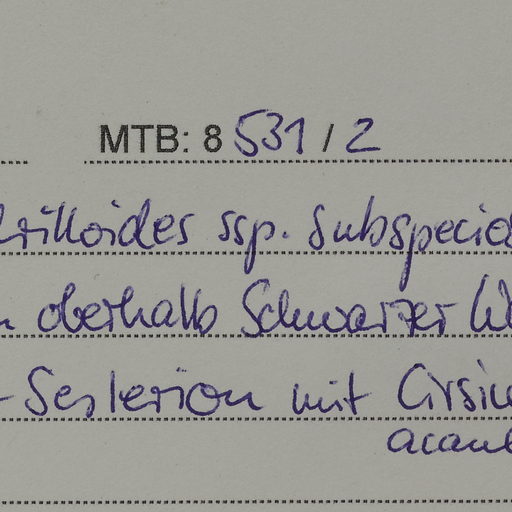 MTB: 8531/2
ssp. subspecio
oberhalb Schwarzer
Seslerion mit Cirsiu
acaul